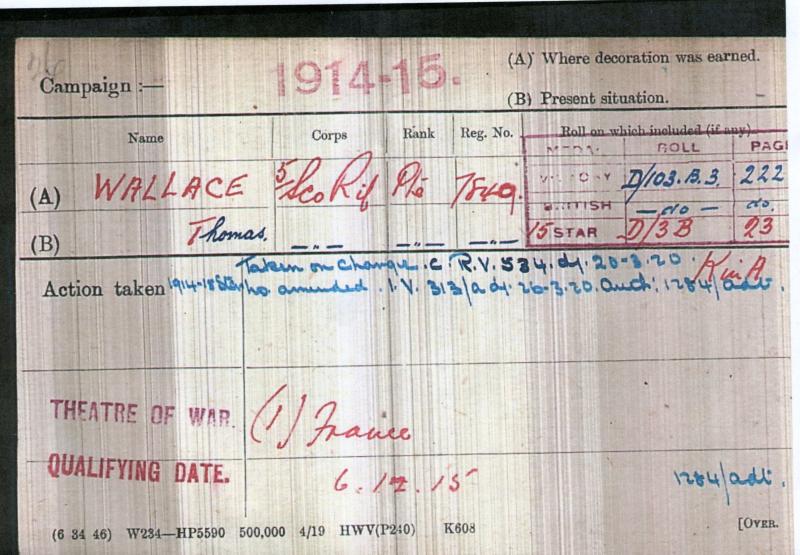 Campaign :— 1914-15.
(A) Where decoration was earned.
(B) Present situation.
Name Corps Rank Reg. No. Roll on which included (if any).
MEDAL ROLL PAGE
(A) WALLACE 5/Sco Rif Pte 7849. VICTORY D/103.B.3. 222
BRITISH —do— do.
(B) Thomas. —„— —„— —„— 15 STAR D/3B 23
Taken on Charge . C. R.V. 534. d/. 20-3.20.
Action taken 1914-15 Star No amended . I.V. 313/a d/. 26-3.20. Auth: 1284/adt.
THEATRE OF WAR. (1) France
QUALIFYING DATE. 6.12.15
1284/adt.
(6 34 46) W234—HP5590 500,000 4/19 HWV(P240) K608 [OVER.